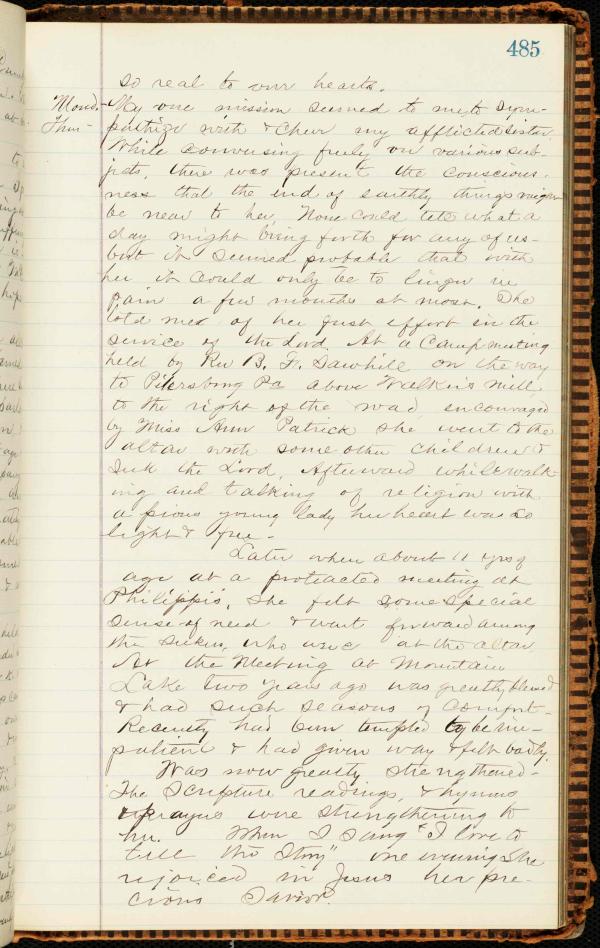 485
so real to our hearts.
Mond- My one mission seemed to me to sym-
Thur- pathize with & cheer my afflicted sister.
While conversing freely on various sub-
jects, there was present the conscious-
ness that the end of earthly things might
be near to her. None could tell what a
day might bring forth for any of us-
but it seemed probable that with
her it could only be to linger in
pain a few months at most. She
told me of her first effort in the
service of the Lord. At a Camp meeting
held by Rev B. F. Sawhill on the way
to Petersburg Pa above Walkins mill
to the right of the road, encouraged
by Miss Ann Patrick she went to the
altar with some other children &
Seek the Lord. Afterward while walk-
ing and talking of religion with
a pious young lady her heart was so
light & free-
Later when about 11 yrs of
age at a protracted meeting at
Philippi, she felt some special
sense of need & went forward among
the seekers, who were at the altar.
At the Meeting at Mountain
Lake two years ago was greatly blessed
& had such seasons of comfort-
Recently had been tempted to be im-
patient & had given way & felt badly.
Was now greatly strengthened-
The Scripture readings, & hymns
prayers were strengthening to
her. When I sang "I love to
tell the Story" one evening she
rejoiced in Jesus her pre-
cious Savior.